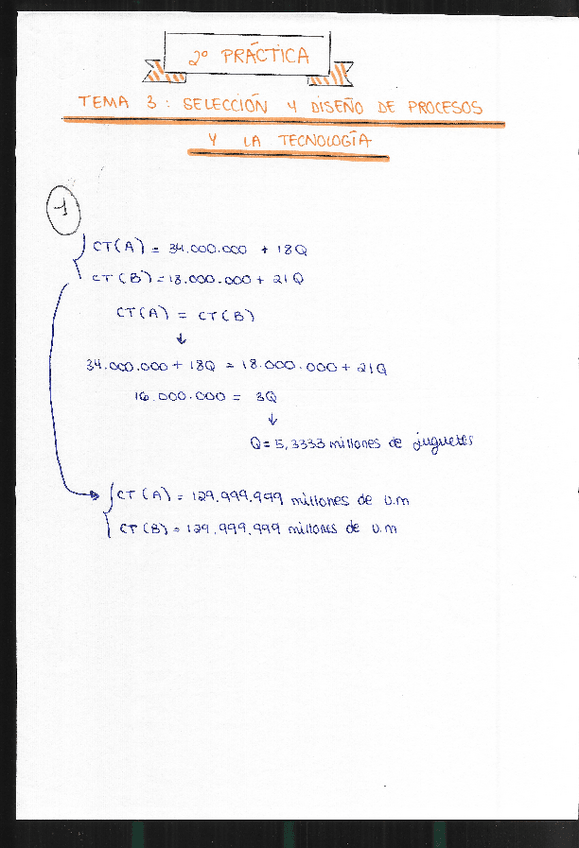 2º PRÁCTICA
TEMA 3: SELECCIÓN Y DISEÑO DE PROCESOS
Y LA TECNOLOGÍA
1
CT(A) = 34.000.000 + 18Q
CT(B) = 18.000.000 + 21Q
CT(A) = CT(B)
34.000.000 + 18Q = 18.000.000 + 21Q
16.000.000 = 3Q
Q = 5,3333 millones de juguetes
CT(A) = 129.999.999 millones de u.m
CT(B) = 129.999.999 millones de u.m